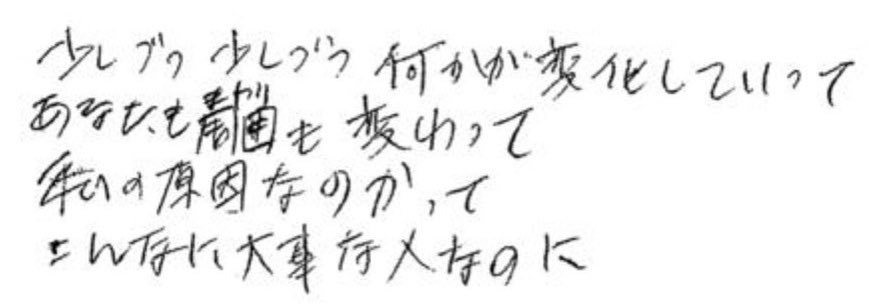 少しづつ 少しづつ 何かが変化していって
あなたも周囲も変わって
私の原因なのかって
こんなに大事な人なのに